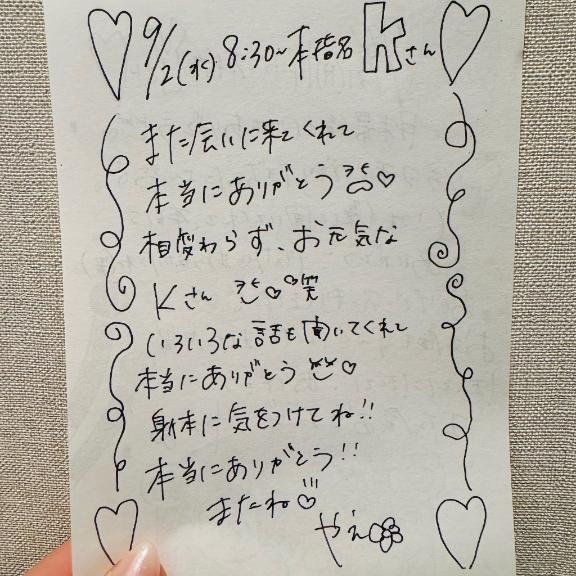 9/2(水) 8:30~本指名 Kさん
また会いに来てくれて
本当にありがとう♡
相変わらず、お元気な
Kさん ♡♡笑
いろいろな話も聞いてくれて
本当にありがとう♡
身体に気をつけてね!!
本当にありがとう!!
またね♡
やえ